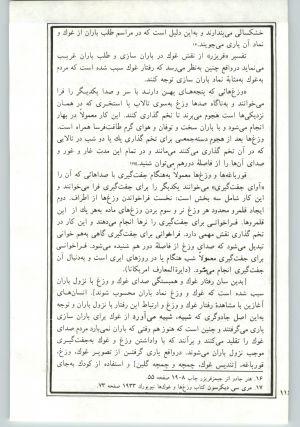 خشکسالی می‌پندارند و به‌این دلیل است که در مراسم طلب باران از غوک و
نماد آن یاری می‌جویند.۱۶
تفسیر «فریزر» از نقش غوک در باران سازی و طلب باران غریب
می‌نماید درواقع چنین به‌نظر می‌رسد که رفتار غوک سبب شده است که مردم
به‌غوک به‌مثابهٔ نماد باران سازی توجه کنند.
«وزغ‌هائی که پنجه‌های پهن دارند با سر و صدا یکدیگر را فرا
می‌خوانند و به‌ناگاه صدها وزغ به‌سوی تالاب یا استخری که در همان
نزدیکی‌ها است هجوم می‌برند تا تخم گذاری کنند. این کار معمولاً در بهار
انجام می‌شود و با باران سخت و توفان و هوای گرم طاقت‌فرسا همراه است.
وزغ‌ها بعد از هجوم دسته‌جمعی برای تخم گذاری یک یا دو شب در تالابی
که در آن تخم گذاری می‌کنند می‌مانند و در تمام این مدت غار و غور و
صدای آن‌ها را از فاصلهٔ دورهم می‌توان شنید.۱۷
قورباغه‌ها و وزغ‌ها معمولاً به‌هنگام جفت‌گیری با صداهائی که آن را
«آوای جفت‌گیری» می‌نامند یکدیگر را برای جفت‌گیری فرا می‌خوانند و
این کار شامل سه بخش است: نخست فراخواندن وزغ‌ها از اطراف. دوم
ایجاد قلمرو محدود هر وزغ نر و سوم بردن وزغ‌های ماده به‌هر یك از این
قلمروها. فراخوانی برای جفت‌گیری را نرها انجام می‌دهند و این کار در
تخم گذاری نقش مهمی دارد. فراخوانی برای جفت‌گیری گاهی به‌هم خوانی
تبدیل می‌شود که صدای آن از فاصلهٔ دور هم شنیده می‌شود. فراخوانی
برای جفت‌گیری معمولاً شب هنگام یا در روزهای ابری است و به‌دنبال آن
جفت‌گیری انجام می‌شود. (دایرة‌المعارف امریکانا).
[بدین سان رفتار غوک و همبستگی صدای غوک و وزغ با نزول باران
سبب شده است که غوک و وزغ نماد باران محسوب شوند]. انسان‌های
آغازین با مشاهدهٔ رفتار غوک و وزغ و ارتباط این رفتار با نزول باران و توجه
به‌این اصل جادوگری که شبیه، شبیه می‌آورد از غوک برای باران سازی
یاری می‌گرفتند و چنین است که هنوز هم وقتی که باران نمی‌بارد مردم صدای
غوک را تقلید می‌کنند و برآنند که با واداشتن وزغ و غوک به‌جفت‌گیری
موجب نزول باران می‌شوند. درواقع یاری گرفتن از تصویر غوک، وزغ،
قورباغه، [تندیس غوک، چمچه و چمچه گلین] و استفاده از کودک به‌جای
۱۶. هنر جادو از جیمزفریزر چاپ ۱۹۰۸ صفحه ۵۵.
۱۷. مری سی دیکرسون کتاب وزغ‌ها و غوک‌ها نیویورک ۱۹۳۳ صفحه ۷۳